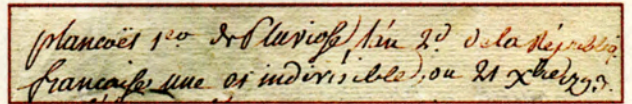 plancoët 1er de Pluviose, l'an 2d de la Républiq.
française une et indivisible, ou 21 Xbre 1793.